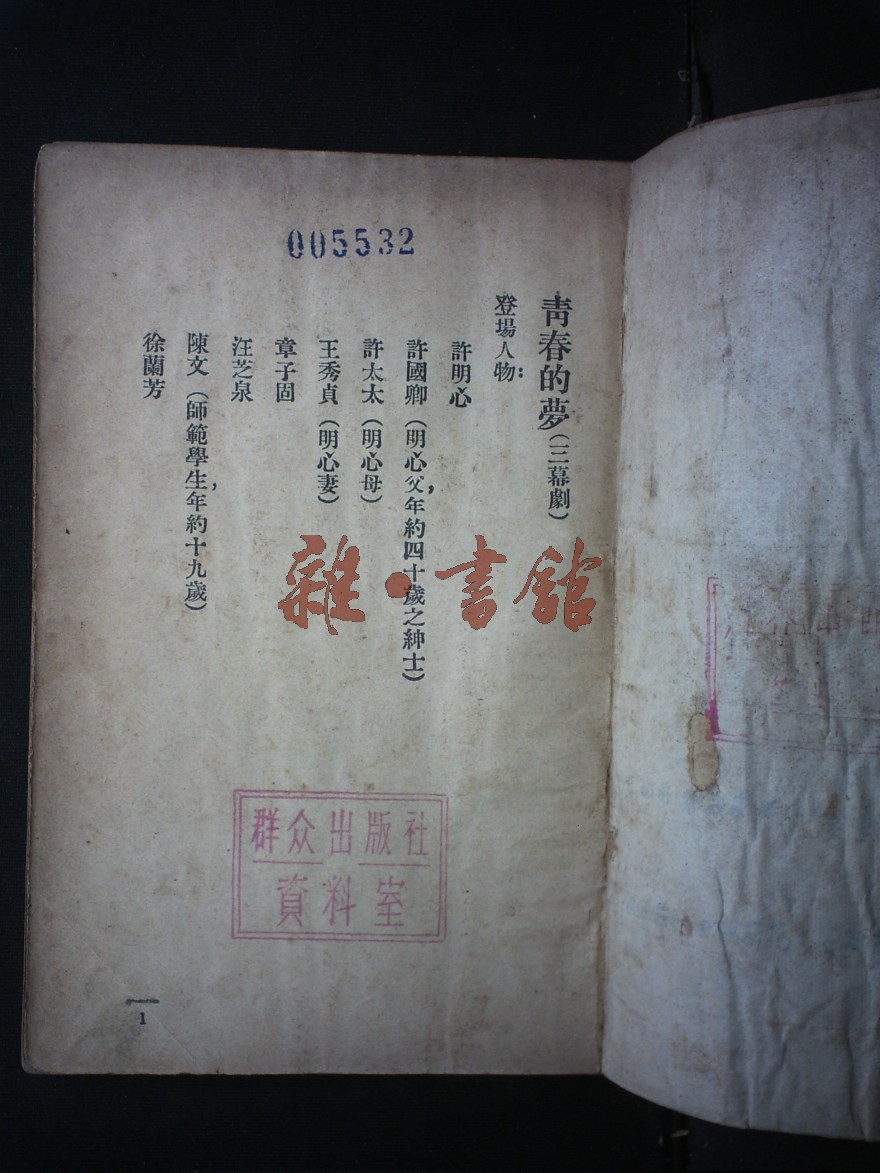 005532
青春的夢(三幕劇)
登場人物：
許明心
許國卿(明心父，年約四十歲之紳士)
許太太(明心母)
王秀貞(明心妻)
章子固
汪芝泉
陳文(師範學生，年約十九歲)
徐蘭芳
雜·書館
群众出版社
資料室
1